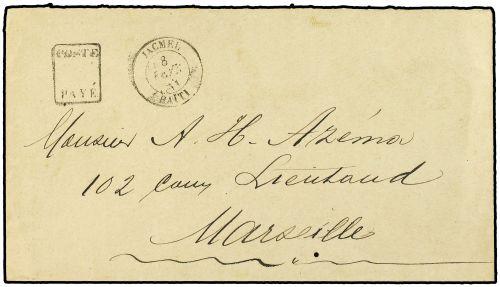 POSTE
PAYÉ
JACMEL
8
HAITI
Monsieur A. H. Azéma
102 cours Lieutaud
Marseille